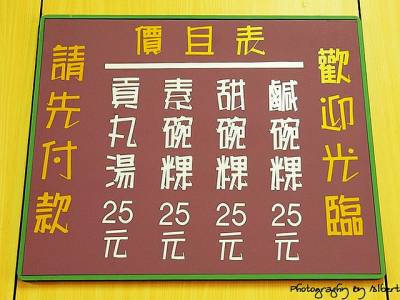 價目表
歡迎光臨
鹹碗粿25元
甜碗粿25元
素碗粿25元
貢丸湯25元
請先付款
Photography by Albert